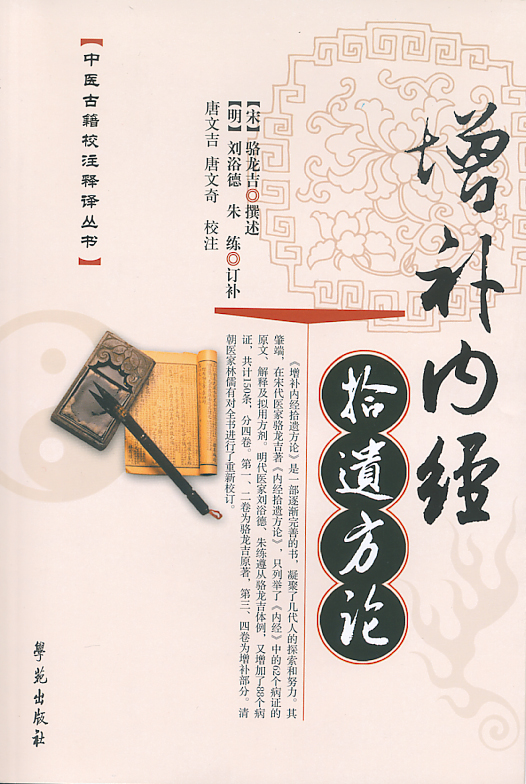 增补内经
拾遗方论
【宋】骆龙吉◎撰述
【明】刘浴德 朱 练◎订补
唐文吉 唐文奇 校注
【中医古籍校注释译丛书】
《增补内经拾遗方论》是一部逐渐完善的书，凝聚了几代人的探索和努力。其
肇端，在宋代医家骆龙吉著《内经拾遗方论》，只列举了《内经》中的62个病证的
原文、解释及拟用方剂。明代医家刘浴德、朱练遵从骆龙吉体例，又增加了88个病
证，共计150条，分四卷。第一、二卷为骆龙吉原著，第三、四卷为增补部分。清
朝医家林儒有对全书进行了重新校订。
學苑出版社